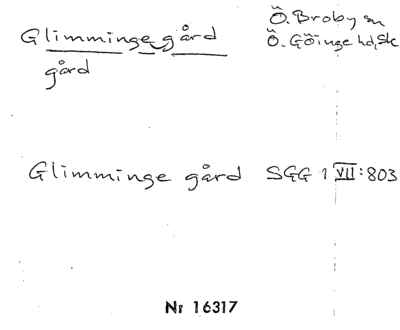 Glimminge gård
gård
Ö. Broby sn
Ö. Göinge hd, Sk
Glimminge gård SGG 1 VII:803
Nr 16317